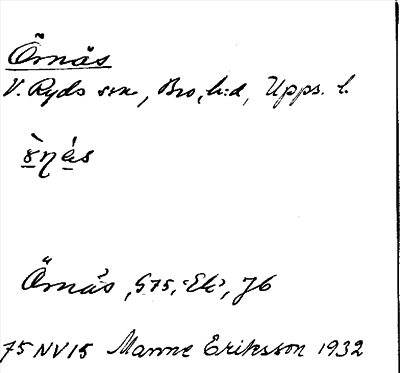 Örnäs
V. Ryds sn, Bro, h:d, Upps. l.
Örnäs, G75, Ek,
75 NV15 Manne Eriksson 1932